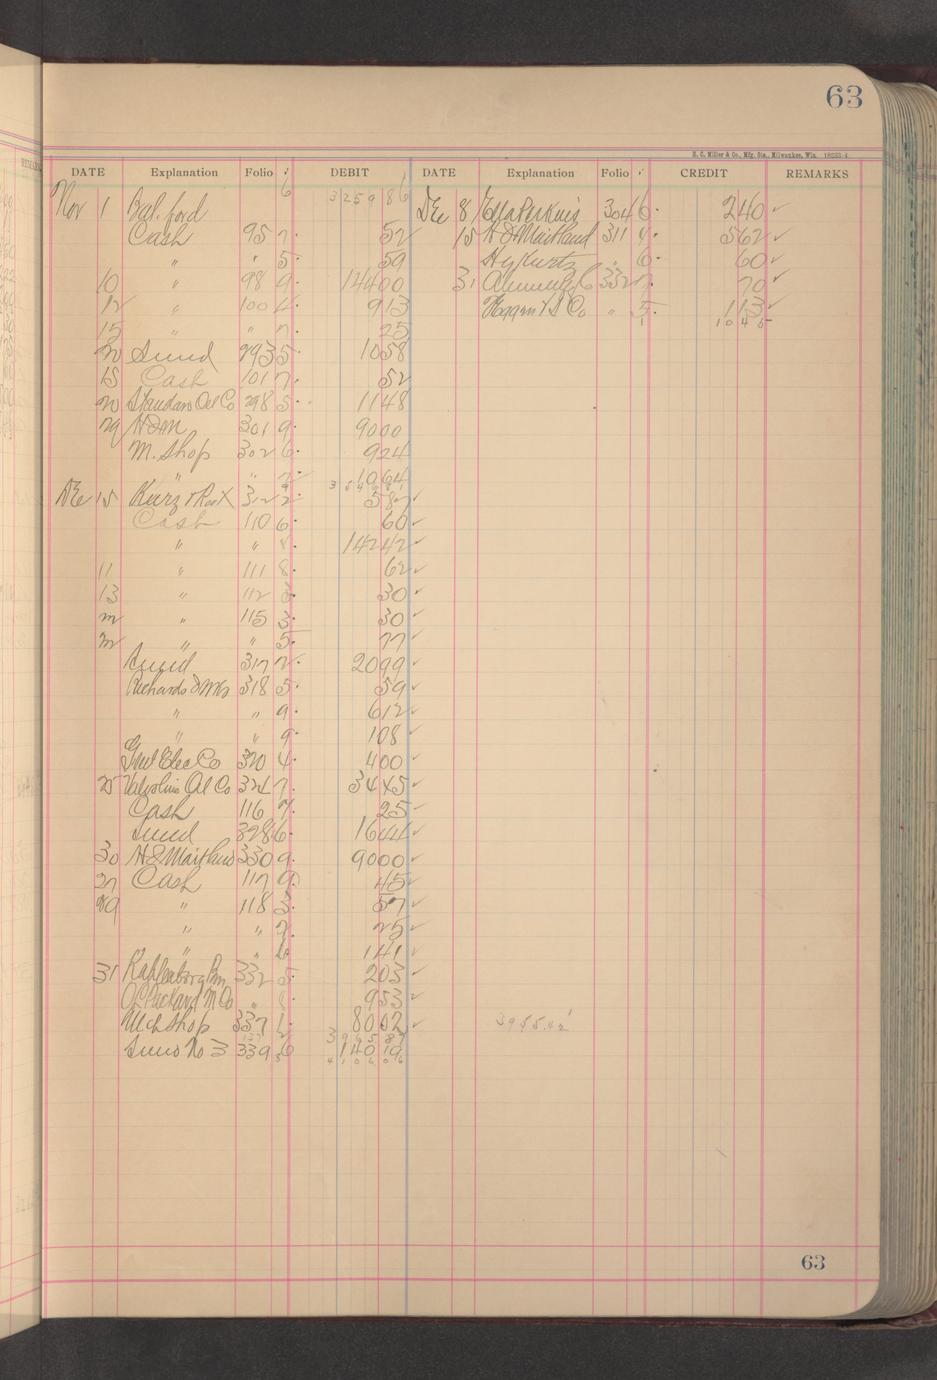 63
H. C. Miller & Co., Mfg. Sta., Milwaukee, Wis. 18233-4
DATE Explanation Folio ✓ DEBIT DATE Explanation Folio ✓ CREDIT REMARKS
Nov 1 Bal. ford 6 3259 86 Dec 8 Ella Perkins 304 6 240 ✓
Cash 95 7 52 15 H & Maitland 311 4 562 ✓
" " 5 59 Hy Kurtz " 6 60 ✓
10 " 98 9 14400 31 332 7 70 ✓
12 " 100 913 " 5 113 ✓
15 " " 7 25 1 1045
20 Sund 293 5 1058
15 Cash 101 7 52
20 Standard Oil Co 298 5 1148
29 H&M 301 9 9000
M. Shop 302 6 924
" " 7 1064
Dec 15 312 2 582 ✓
Cash 110 6 60 ✓
" " 8 14242 ✓
11 " 111 8 62 ✓
13 " 112 3 30 ✓
" 115 3 30 ✓
" " 5 77 ✓
Sund 317 2 2099 ✓
Richards & 318 5 59 ✓
" " 9 612 ✓
" " 9 108 ✓
Genl Elec Co 320 4 400 ✓
25 Valvoline Oil Co 324 7 3445 ✓
Cash 116 7 25 ✓
Sund 328 6 1644 ✓
30 H & Maitland 330 9 9000 ✓
27 Cash 117 9 45 ✓
29 " 118 3 57 ✓
" " 7 25 ✓
" " 6 141 ✓
31 332 5 203 ✓
O L Packard M Co " 8 953 ✓
Mch Shop 337 1 8002 ✓ 3955.42
Sund No 3 339 6 140 19
63